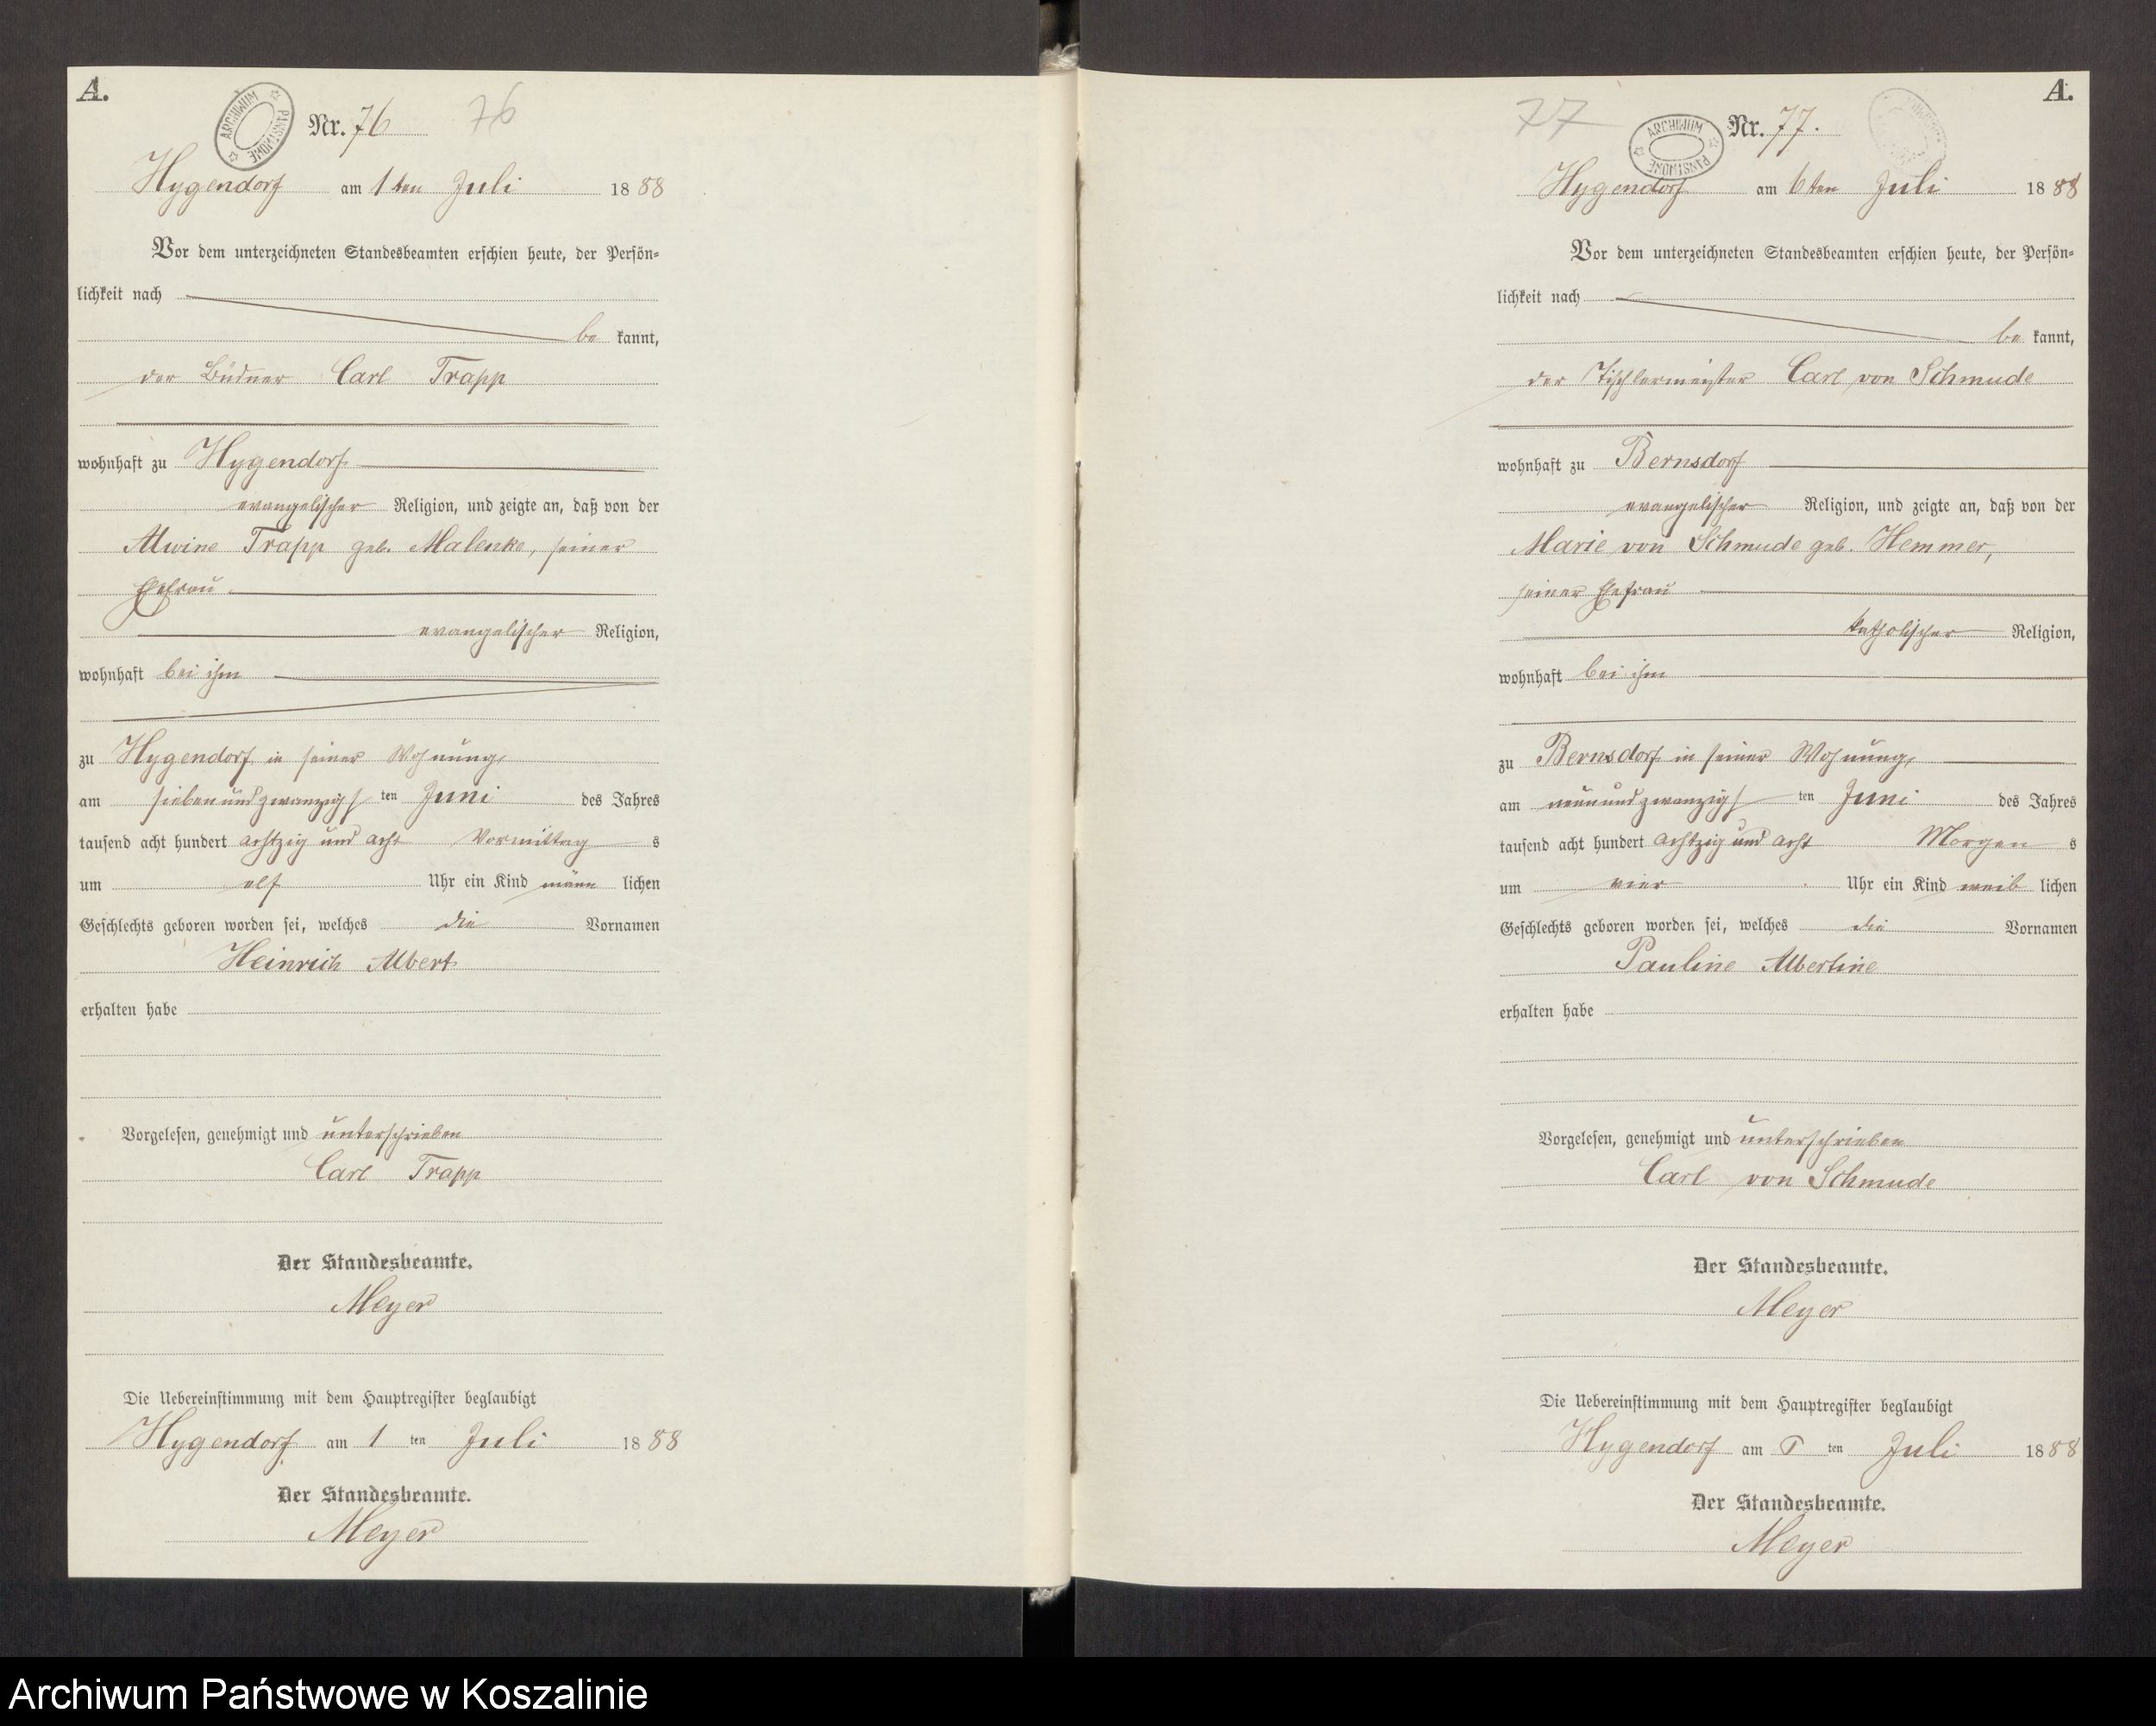 A.
ARCHIWUM PAŃSTWOWE
Nr. 76 76
Hygendorf am 1ten Juli 1888
Vor dem unterzeichneten Standesbeamten erschien heute, der Persön-
lichkeit nach
be kannt,
der Büdner Carl Trapp
wohnhaft zu Hygendorf
evangelischer Religion, und zeigte an, daß von der
Alwine Trapp geb. Malenke, seiner
Ehefrau
evangelischer Religion,
wohnhaft bei ihm
zu Hygendorf in seiner Wohnung,
am siebenundzwanzigs ten Juni des Jahres
tausend acht hundert achtzig und acht Vormittag s
um elf Uhr ein Kind männ lichen
Geschlechts geboren worden sei, welches die Vornamen
Heinrich Albert
erhalten habe
Vorgelesen, genehmigt und unterschrieben
Carl Trapp
Der Standesbeamte.
Meyer
Die Uebereinstimmung mit dem Hauptregister beglaubigt
Hygendorf am 1 ten Juli 1888
Der Standesbeamte.
Meyer
A.
77 ARCHIWUM PAŃSTWOWE Nr. 77.
Hygendorf am 6ten Juli 1888
Vor dem unterzeichneten Standesbeamten erschien heute, der Persön-
lichkeit nach
be kannt,
der Tischlermeister Carl von Schmude
wohnhaft zu Bernsdorf
evangelischer Religion, und zeigte an, daß von der
Marie von Schmude geb. Hemmer,
seiner Ehefrau
katholischer Religion,
wohnhaft bei ihm
zu Bernsdorf in seiner Wohnung,
am neunundzwanzigs ten Juni des Jahres
tausend acht hundert achtzig und acht Morgen s
um vier Uhr ein Kind weib lichen
Geschlechts geboren worden sei, welches die Vornamen
Pauline Albertine
erhalten habe
Vorgelesen, genehmigt und unterschrieben
Carl von Schmude
Der Standesbeamte.
Meyer
Die Uebereinstimmung mit dem Hauptregister beglaubigt
Hygendorf am ten Juli 1888
Der Standesbeamte.
Meyer
Archiwum Państwowe w Koszalinie